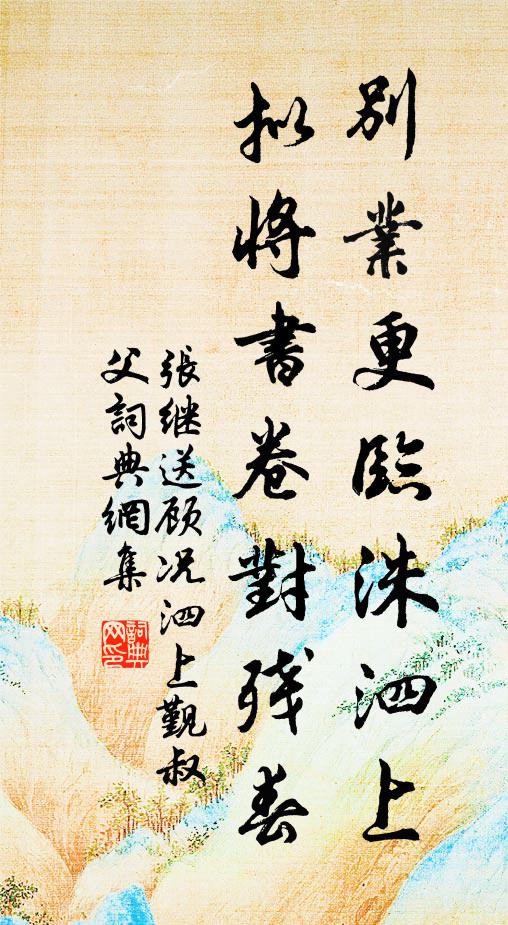 別業更臨洙泗上
拟将書卷對残春
張继送顾况泗上觐叔
父詞典網集
詞典網印